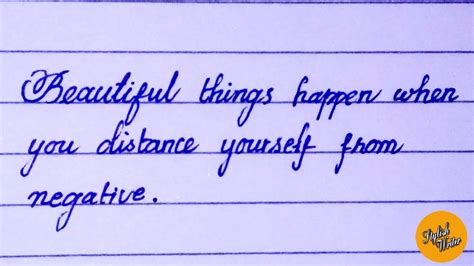 Beautiful things happen when
you distance yourself from
negative.
Stylish
Writer